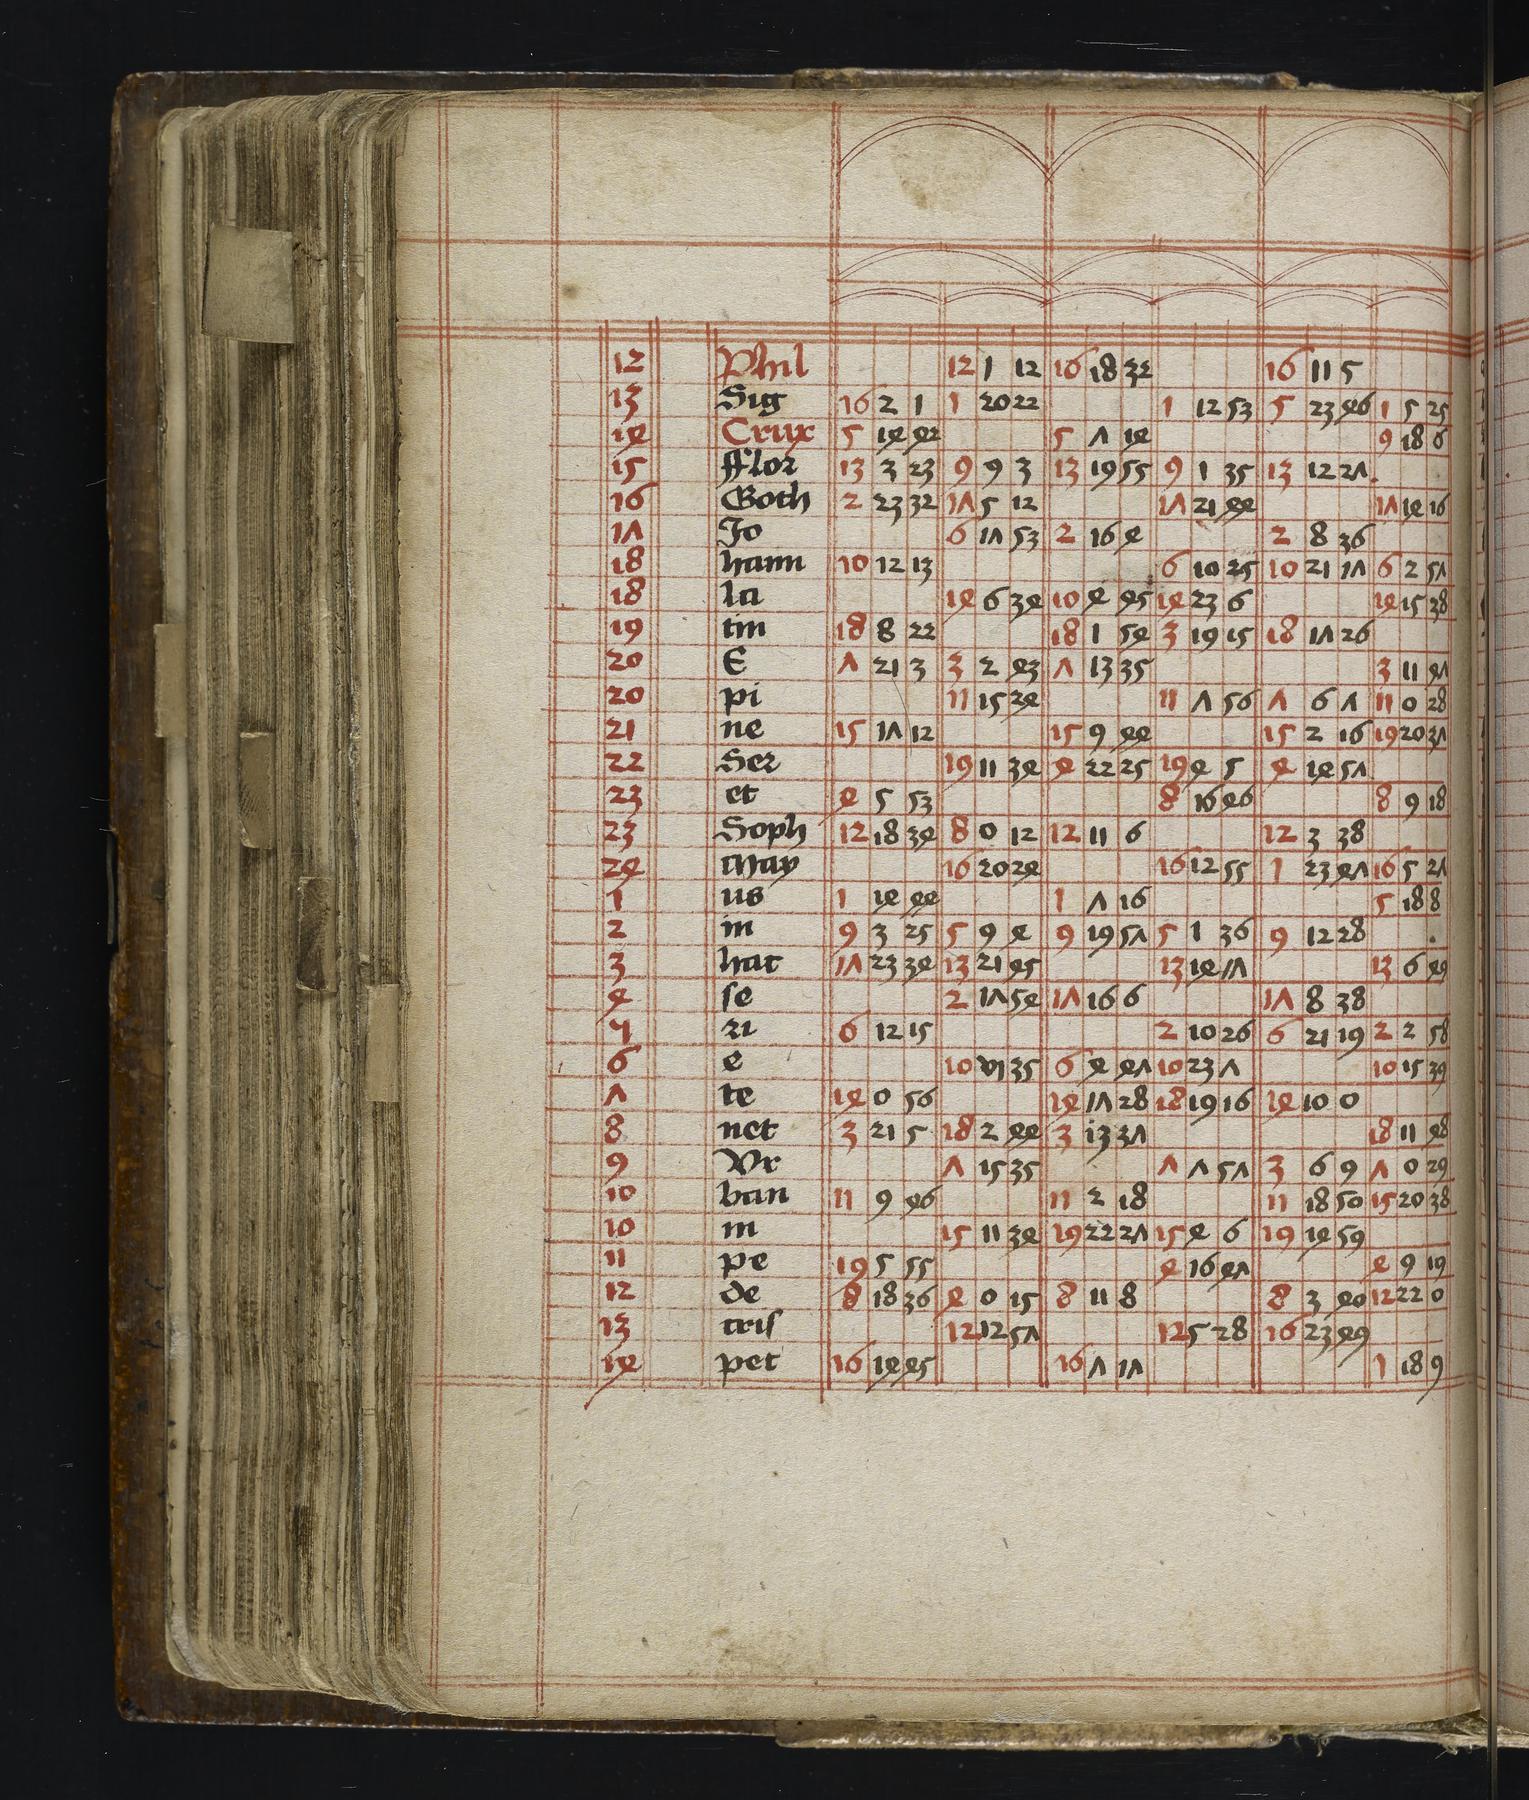 12 Phil 12 1 12 16 18 32 16 11 5
13 Sig 16 2 1 1 20 22 1 12 53 5 23 46 1 5 25
14 Crux 5 14 42 5 7 14 9 18 6
15 fflor 13 3 23 9 9 3 13 19 55 9 1 35 13 12 27
16 Goth 2 23 32 17 5 12 17 21 44 17 14 16
17 Jo 6 17 53 2 16 4 2 8 36
18 hann 10 12 13 6 10 25 10 21 17 6 2 57
18 la 14 6 34 10 4 45 14 23 6 14 15 38
19 tin 18 8 22 18 1 54 3 19 15 18 17 26
20 E 7 21 3 3 2 43 7 13 35 3 11 47
20 pi 11 15 24 11 7 56 7 6 7 11 0 28
21 ne 15 17 12 15 9 44 15 2 16 19 20 37
22 Ser 19 11 34 4 22 25 19 4 5 4 14 57
23 et 4 5 53 8 16 46 8 9 18
23 Soph 12 18 34 8 0 12 12 11 6 12 3 38
24 May 16 20 24 16 12 55 1 23 47 16 5 27
1 us 1 14 44 1 7 16 5 18 8
2 in 9 3 25 5 9 4 9 19 57 5 1 36 9 12 28
3 hac 17 23 34 13 21 45 13 14 17 13 6 49
4 se 2 17 54 17 16 6 17 8 38
5 ri 6 12 15 2 10 26 6 21 19 2 2 58
6 e 10 VI 35 6 4 47 10 23 7 10 15 39
7 te 14 0 56 14 17 28 18 19 16 14 10 0
8 net 3 21 5 18 2 44 3 13 37 18 11 48
9 Vr 7 15 35 7 7 57 3 6 9 7 0 29
10 ban 11 9 46 11 2 18 11 18 50 15 20 38
10 in 15 11 34 19 22 27 15 4 6 19 14 59
11 pe 19 5 55 4 16 47 4 9 19
12 de 8 18 36 4 0 15 8 11 8 8 3 40 12 22 0
13 cris 12 12 57 12 5 28 16 23 49
14 pet 16 14 45 16 7 17 1 18 9